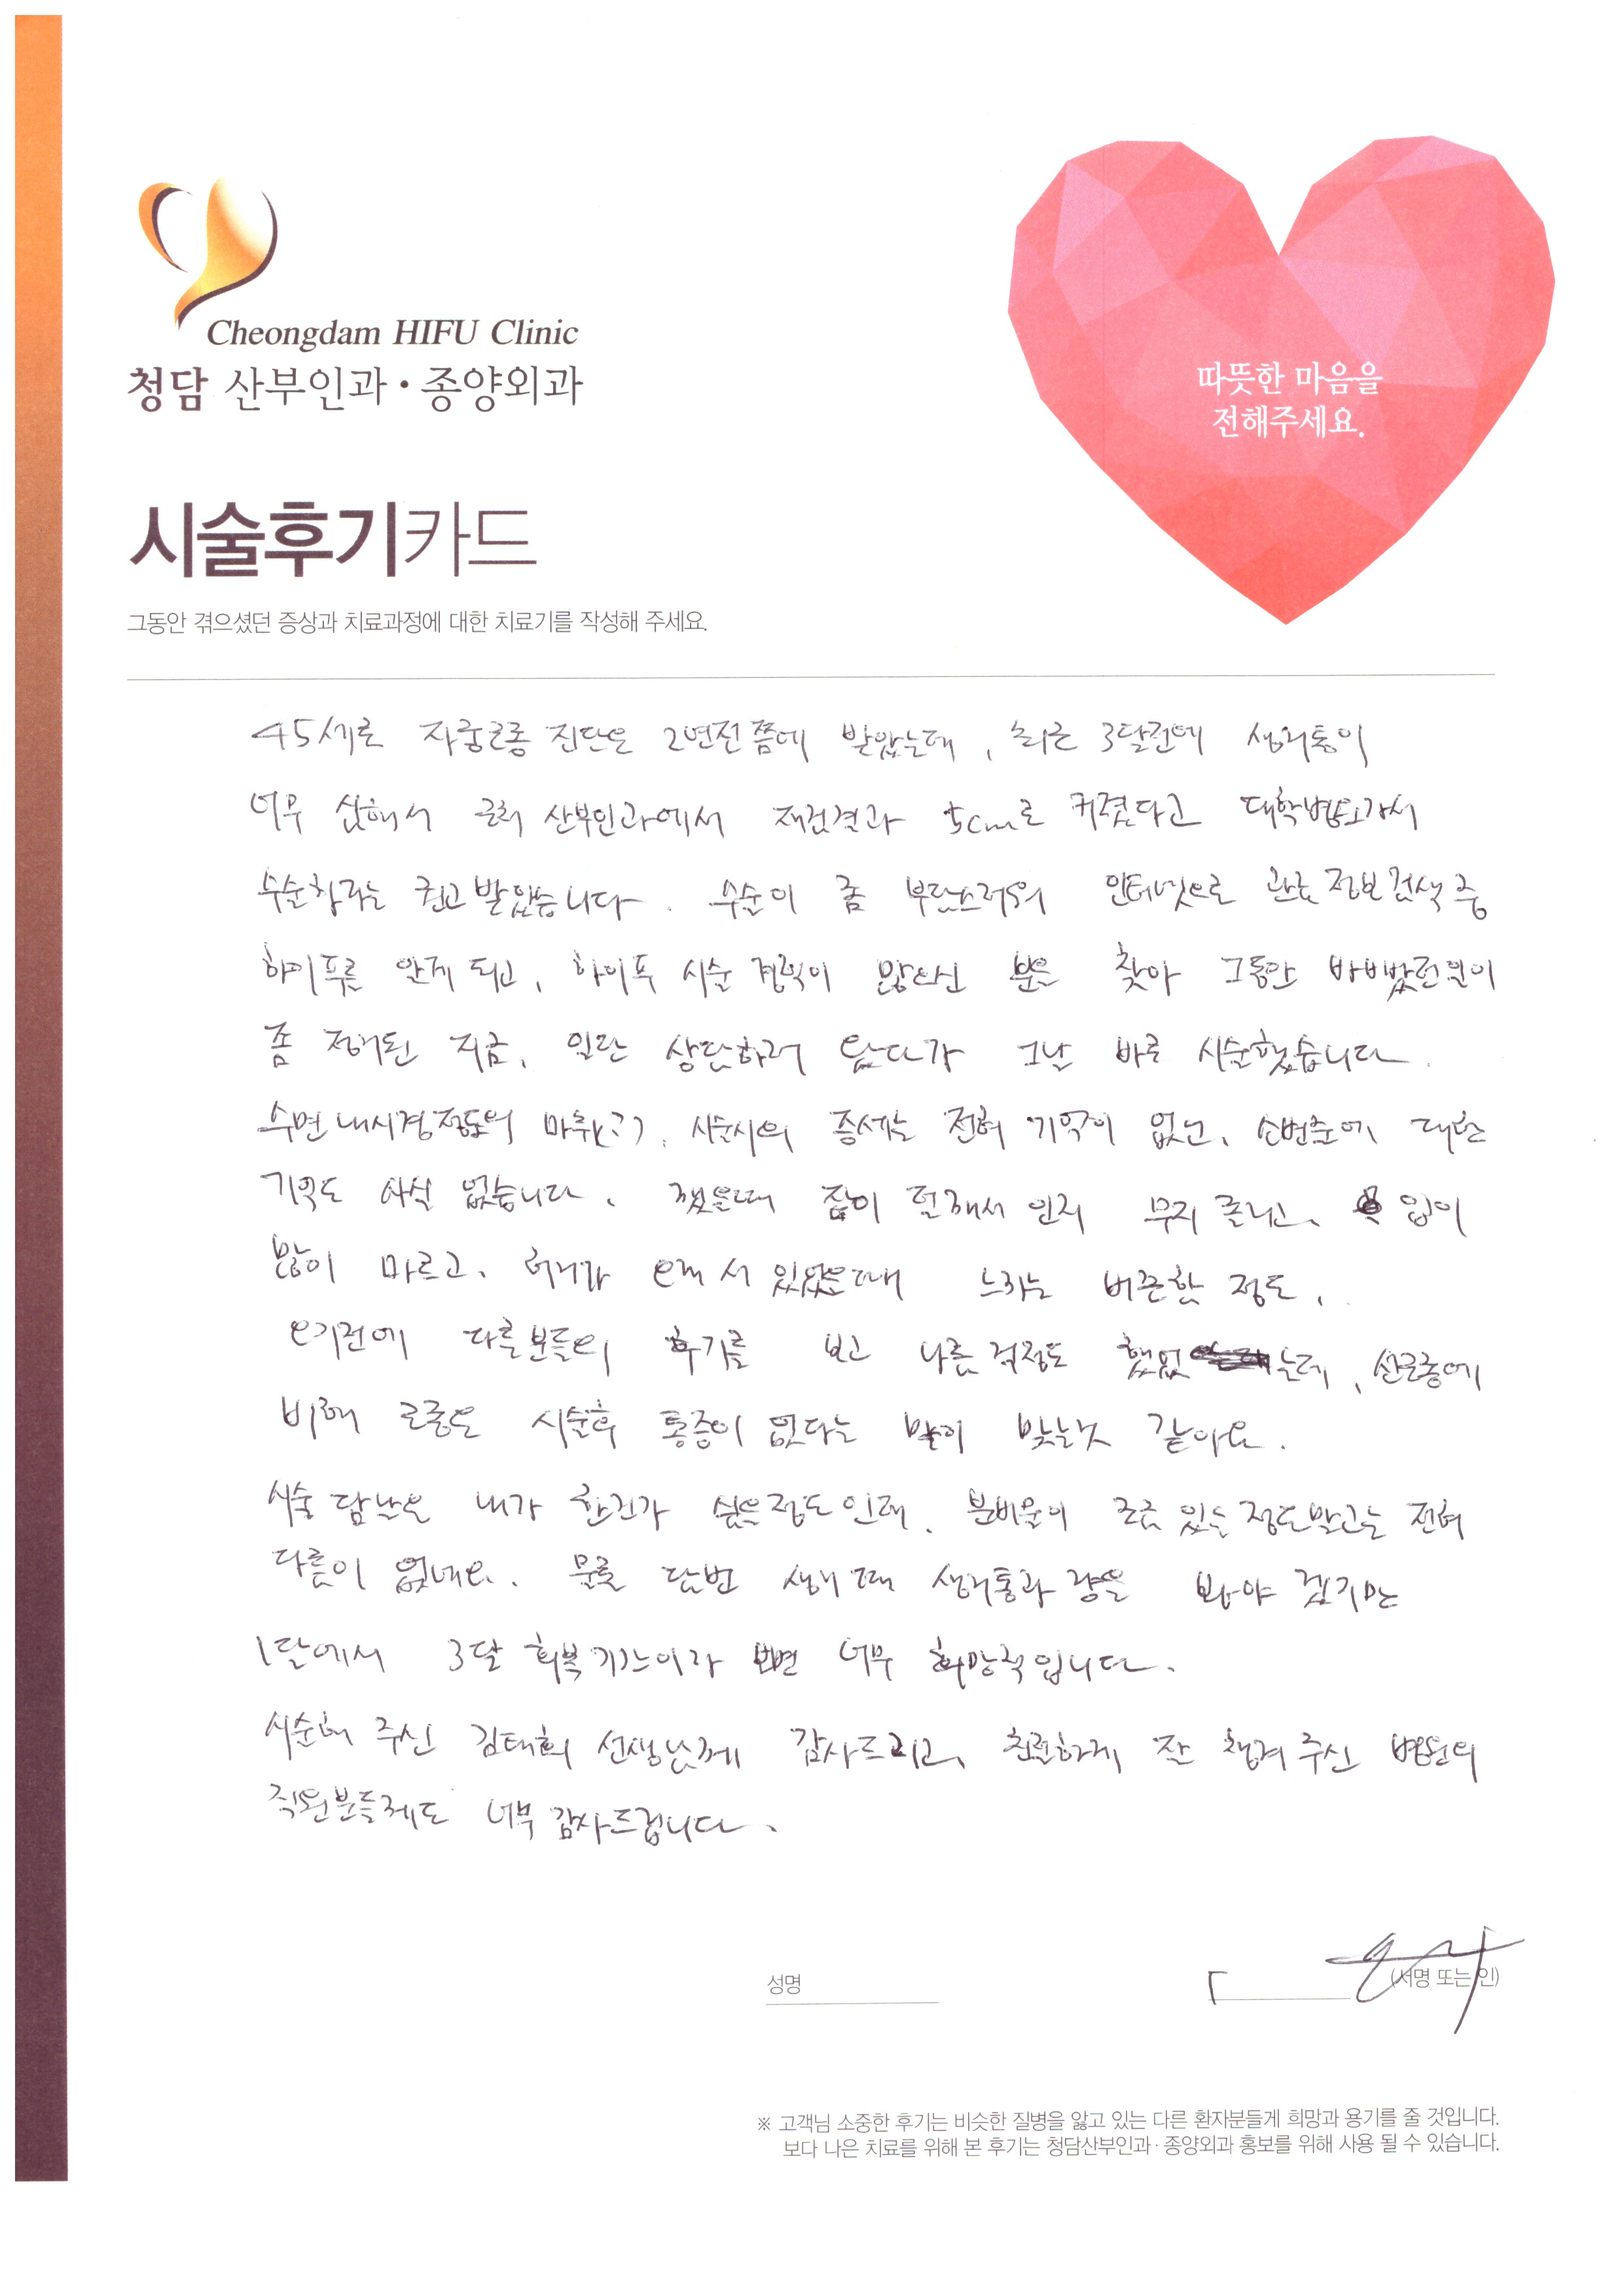 Cheongdam HIFU Clinic
청담 산부인과·종양외과
따뜻한 마음을
전해주세요.
시술후기카드
그동안 겪으셨던 증상과 치료과정에 대한 치료기를 작성해 주세요.
45세로 자궁근종 진단은 2년전쯤에 받았는데, 최근 3달전에 생리통이
너무 심해서 근처 산부인과에서 재검결과 5cm로 커졌다고 대학병원가서
수술하라는 권고 받았습니다. 수술이 좀 부담스러워 인터넷으로 관련 정보 검색 중
하이푸를 알게 되고, 하이푸 시술 경험이 많으신 분을 찾아 그동안 바빴던 일이
좀 정리된 지금, 일단 상담하러 왔다가 그날 바로 시술했습니다.
수면내시경정도의 마취(?), 시술시의 증세는 전혀 기억이 없고, 소변줄에 대한
기억도 사실 없습니다. 깼을때 잠이 덜깨서 인지 무지 졸리고, 입이
많이 마르고, 허리가 오래 서 있었을때 느끼는 뻐근함 정도.
오기전에 다른분들의 후기를 보고 나름 걱정도 했었는데, 선근종에
비해 근종은 시술후 통증이 없다는 말이 맞는것 같아요.
시술 담날은 내가 환자가 싶은정도인데, 분비물이 조금 있는 정도말고는 전혀
다름이 없네요. 물론 담번 생리때 생리통과 량을 봐야 겠지만
1달에서 3달 회복기간이라 보면 너무 희망적입니다.
시술해 주신 김태희 선생님께 감사드리고, 친절하게 잘 챙겨 주신 병원의
직원분들께도 너무 감사드립니다.
성명 (서명 또는 인)
※ 고객님 소중한 후기는 비슷한 질병을 앓고 있는 다른 환자분들게 희망과 용기를 줄 것입니다.
보다 나은 치료를 위해 본 후기는 청담산부인과·종양외과 홍보를 위해 사용 될 수 있습니다.